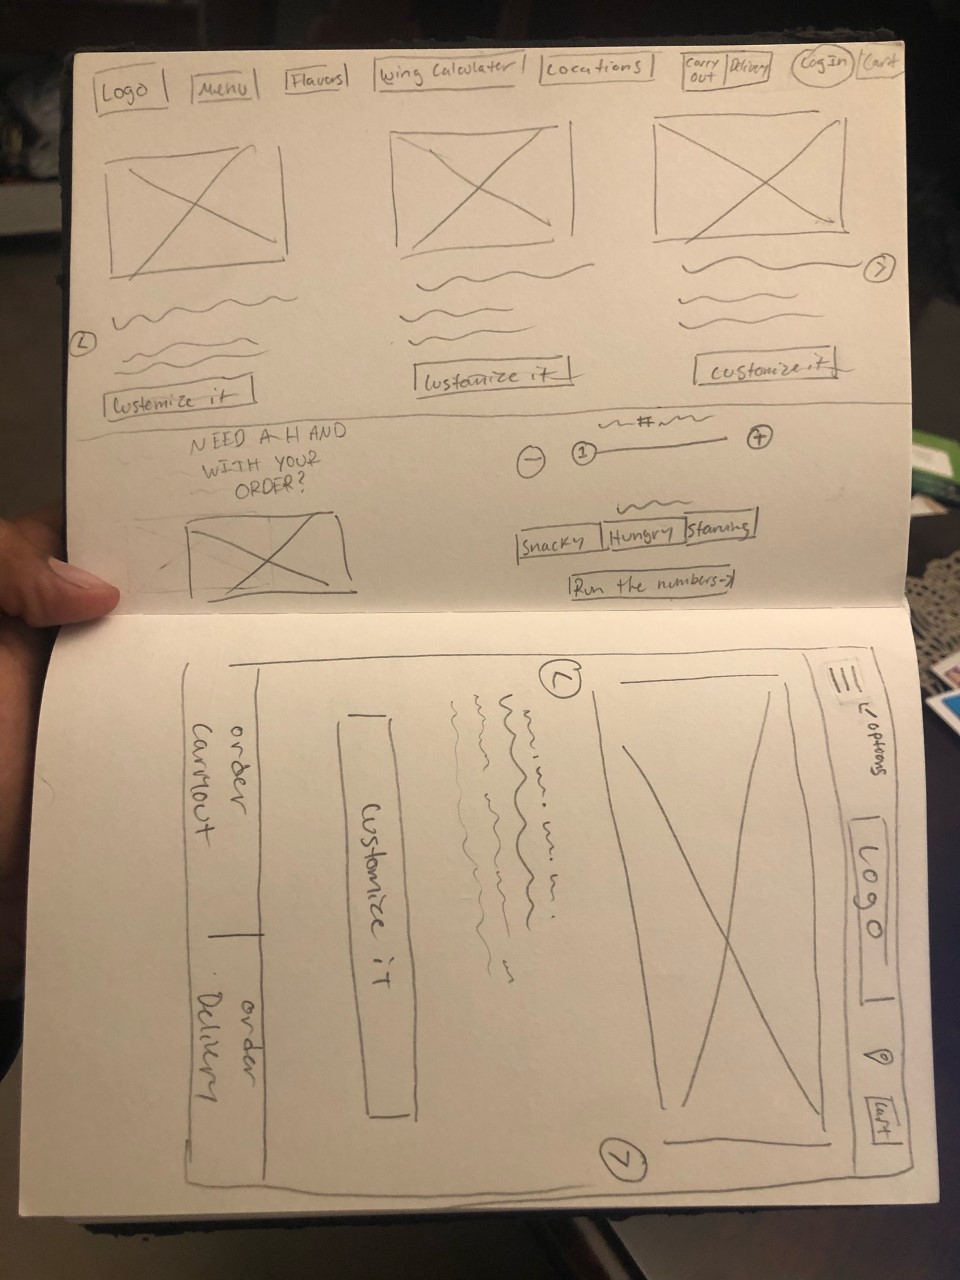 Logo
Menu
Flavors
Wing Calculater
Locations
Carry
out
Delivery
Log In
Cart
Customize it
Customize it
Customize it
NEED A HAND
WITH YOUR
ORDER?
#
- 1 +
Snacky
Hungry
Starving
Run the numbers →
options
Logo
Cart
Customize it
order
carryout
order
Delivery